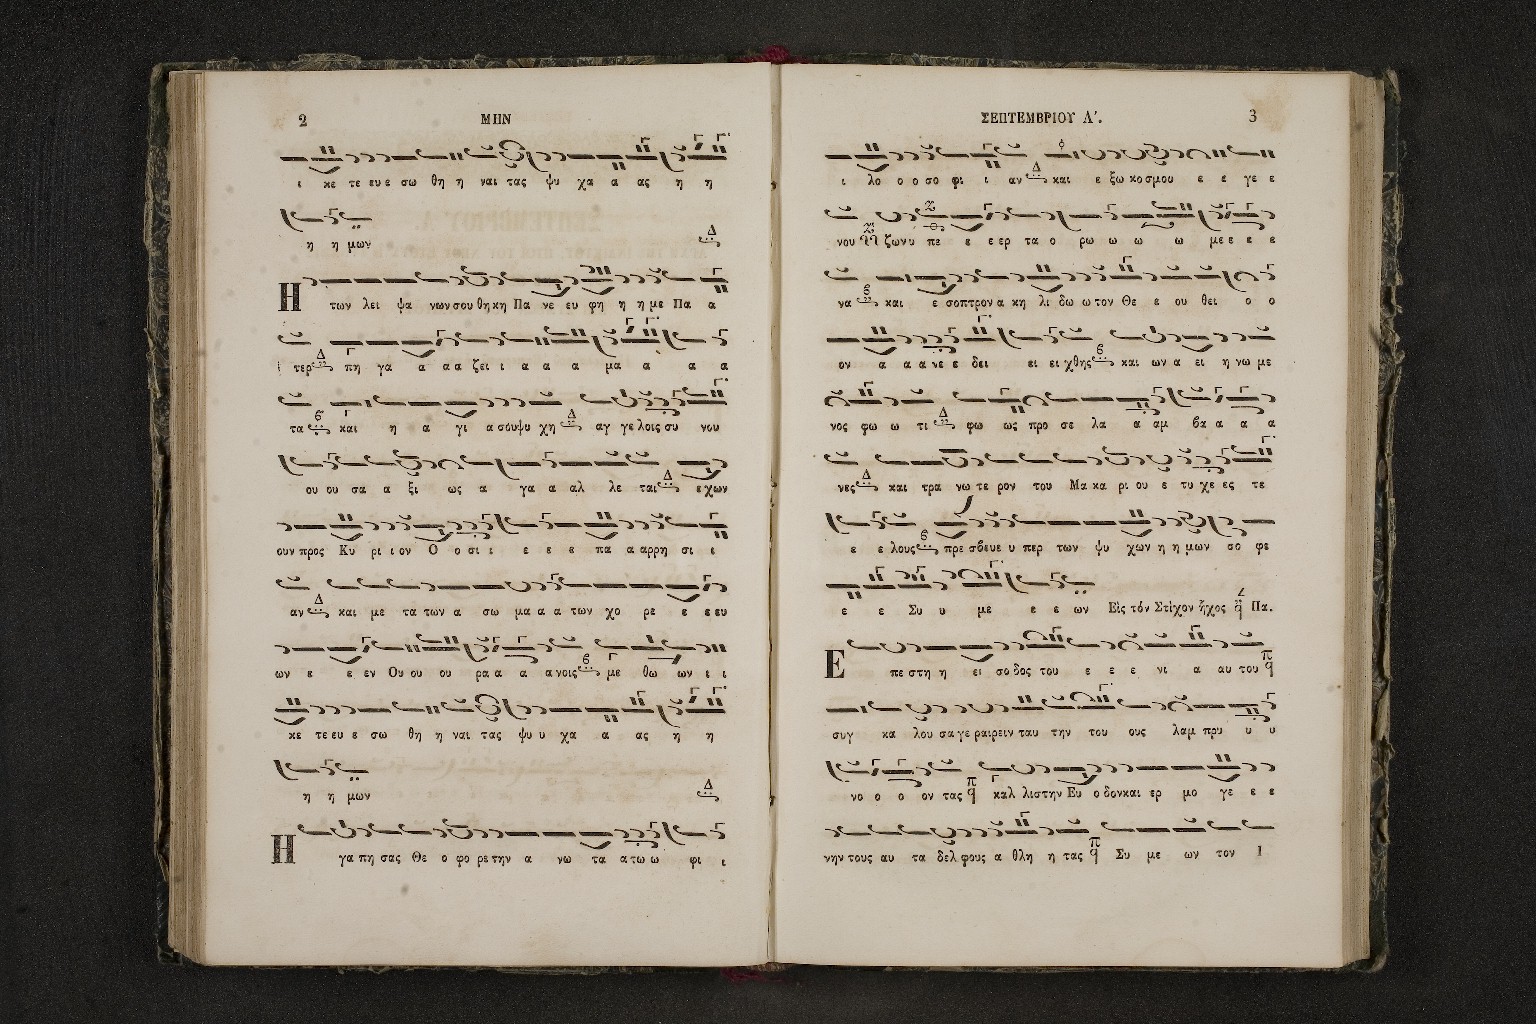 2
ΜΗΝ
ι κε τε ευ ε σω θη η ναι τας ψυ χα α ας η η
η η μων
Η των λει ψα νων σου θη κη Πα νε ευ φη η η με Πα α
τερ πη γα α α α ζει ι α α α μα α α α
τα και η α γι α σου ψυ χη αγ γε λοις συ νου
ου ου σα α ξι ως α γα α αλ λε ται ε χων
ουν προς Κυ ρι ι ον Ο ο σι ι ε ε ε πα α αρρη σι ι
αν και με τα των α σω μα α α των χο ρε ε ε ευ
ων ε ε εν Ου ου ου ρα α α α νοις με θω ων ι ι
κε τε ευ ε σω θη η ναι τας ψυ υ χα α ας η η
η η μων
Η γα πη σας Θε ο φο ρε την α νω τα α τω ω φι ι
ΣΕΠΤΕΜΒΡΙΟΥ Α΄.
3
ι λο ο ο σο φι ι αν και ε ξω κο σμου ε ε γε ε
νου ζων υ πε ε ε ερ τα ο ρω ω ω ω με ε ε ε
να και ε σοπτρον α κη λι δω ω τον Θε ε ου θει ο ο
ον α α α νε ε δει ει ει χθης και ων α ει η νω με
νος φω ω τι φω ως προ σε λα α αμ βα α α α
νες και τρα νω τε ρον του Μα κα ρι ου ε τυ χε ες τε
ε ε λους πρε σβευε υ περ των ψυ χων η η μων σο φε
ε ε Συ υ με ε ε ων Εἰς τόν Στίχον ἦχος Πα.
Ε πε στη η ει σο δος του ε ε ε νι α αυ του
συγ κα λου σα γε ραιρειν ταυ την του ους λαμ πρυ υ υ
νο ο ο ον τας καλ λιστην Ευ ο δονκαι ερ μο γε ε ε
νην τους αυ τα δελ φους α θλη η τας Συ με ων τον